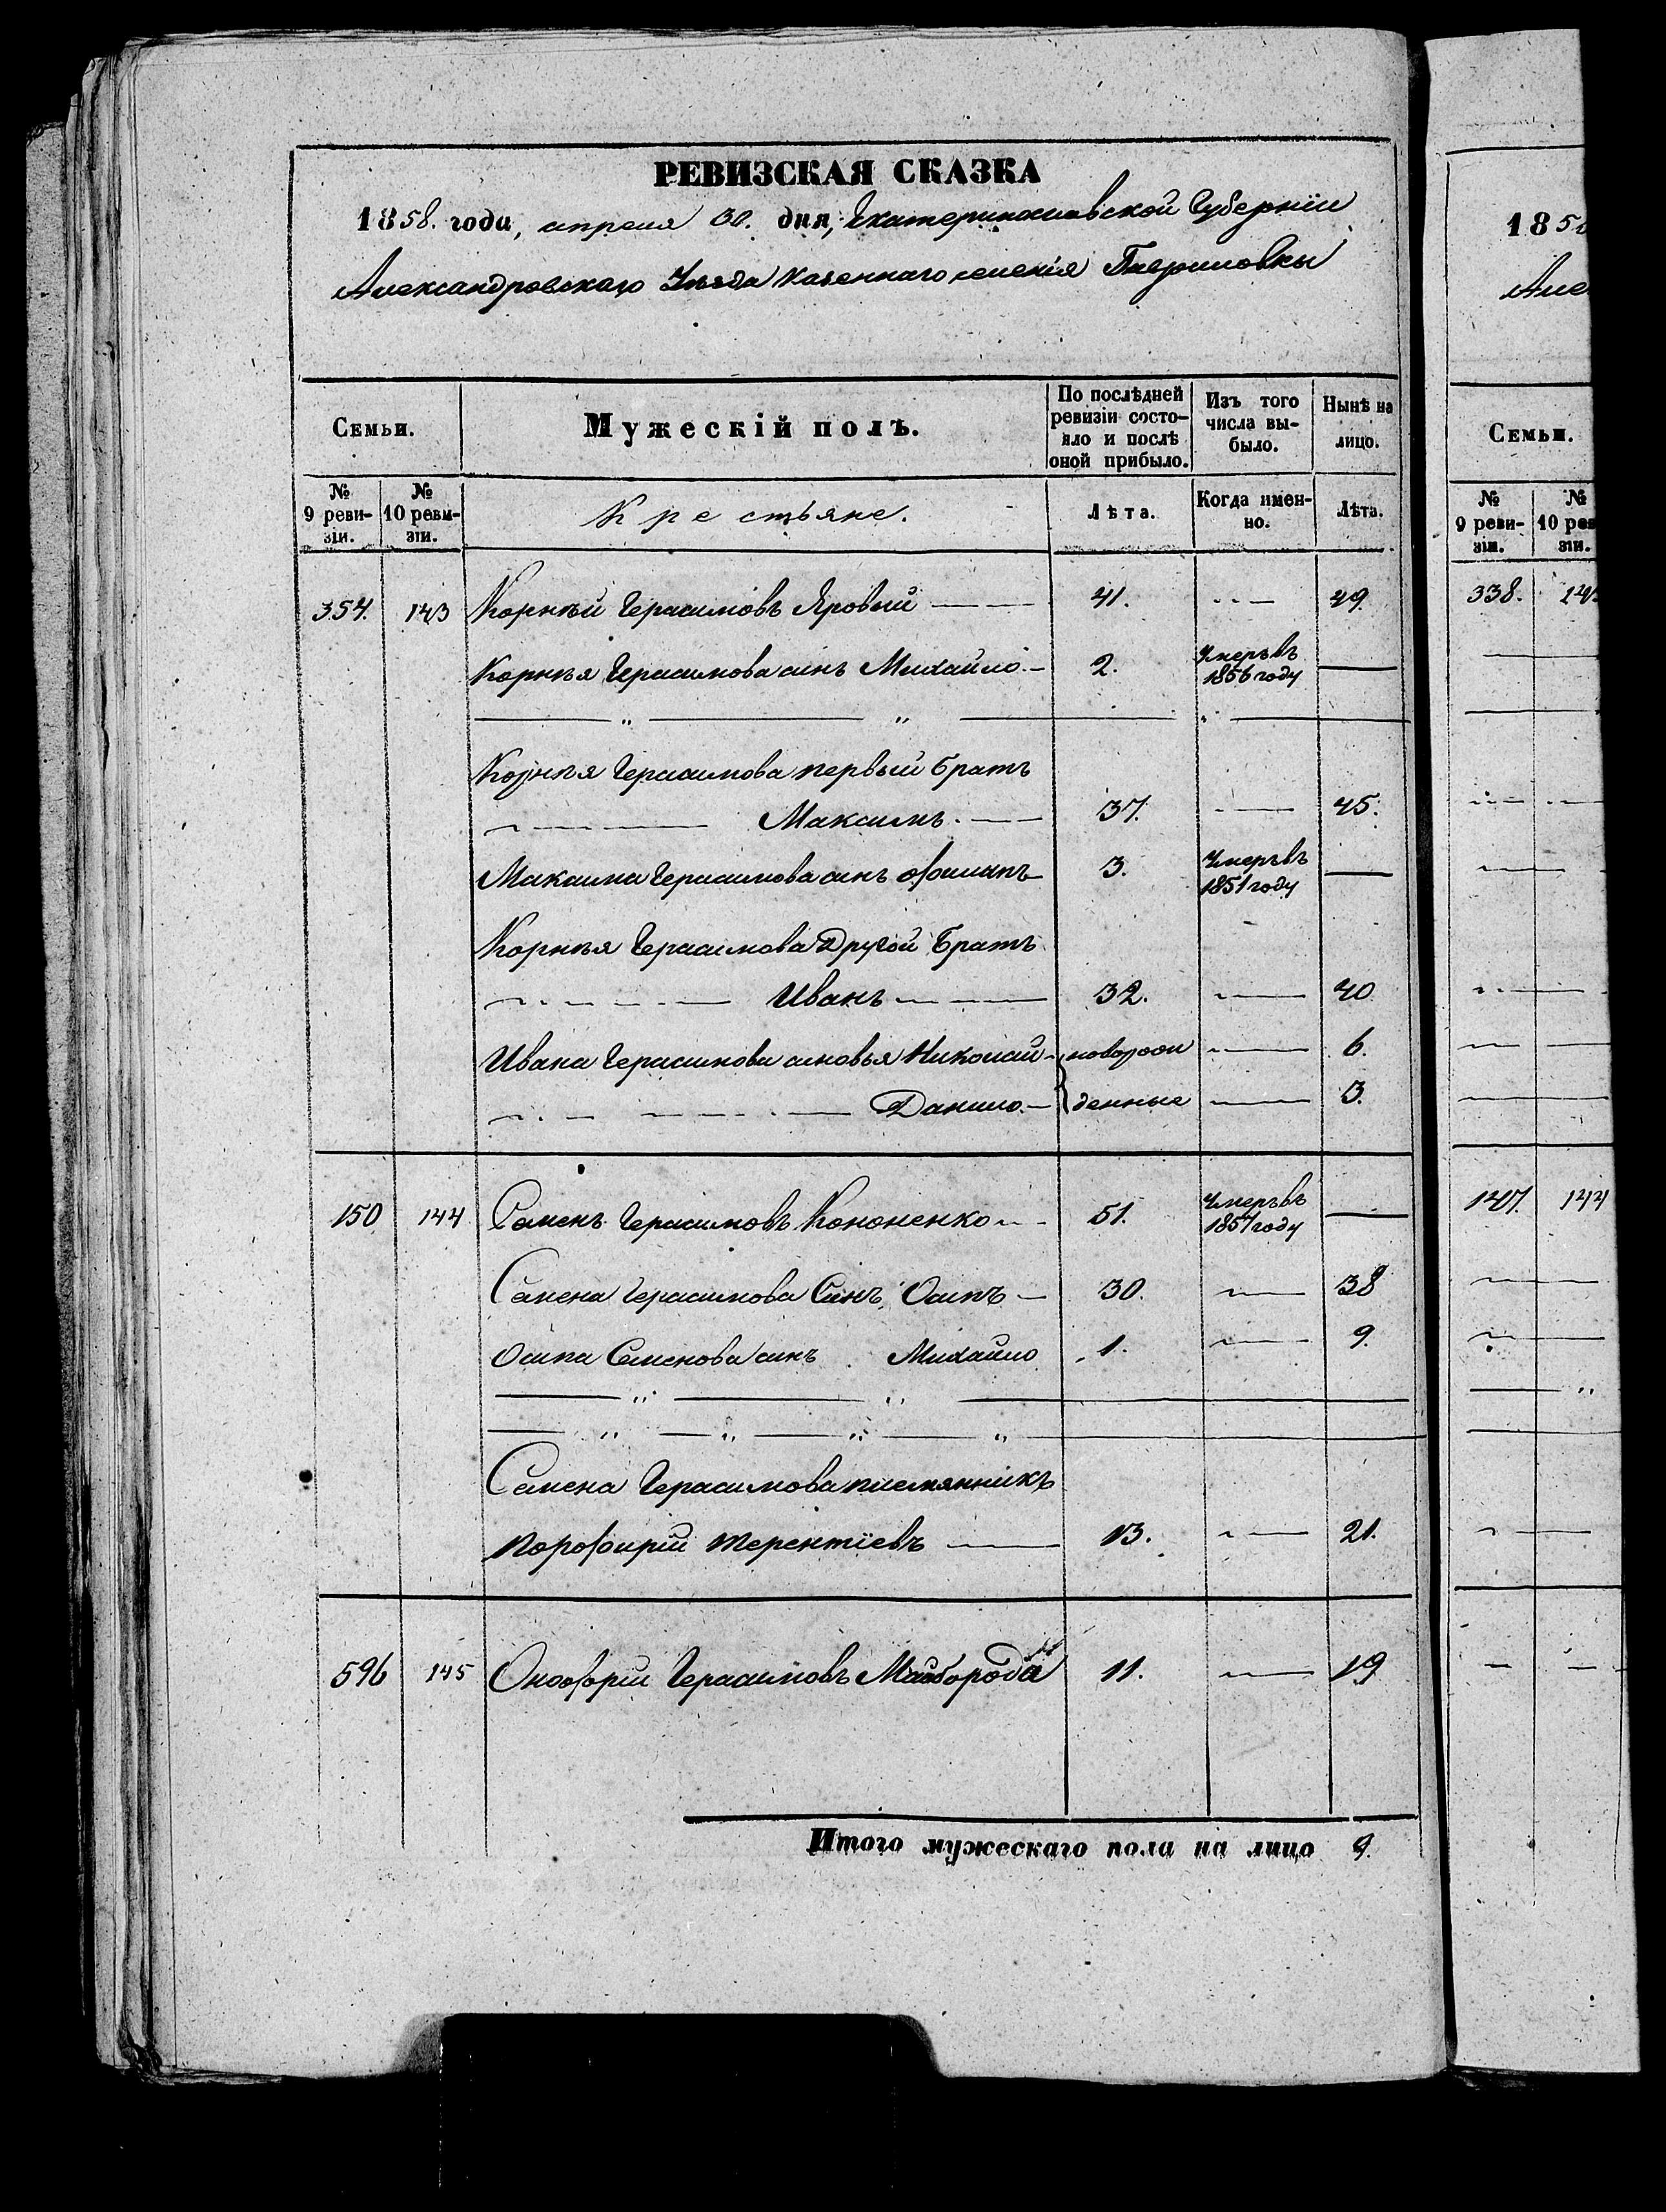 РЕВИЗСКАЯ СКАЗКА
1858. года, апреля 30. дня, Екатеринославской Губерніи
Александровскаго Уезда казеннаго селенія Гавриловки
Семьи.
Мужескій полъ.
По послѣдней ревизіи состо-
яло и послѣ
оной прибыло.
Изъ того
числа вы-
было.
Нынѣ на
лицо.
№ 9 реви-
зіи.
№ 10 реви-
зіи.
Крестьяне.
Лѣта.
Когда имен-
но.
Лѣта.
354. 143 Корнѣй Герасимовъ Яровый 41. 49.
Корнѣя Герасимова синъ Михайло 2. Умеръ въ 1856 году
Корнѣя Герасимова первый братъ
Максимъ. 37. 45.
Максима Герасимова синъ Филипъ 3. Умеръ въ 1851 году
Корнѣя Герасимова Другой Братъ
Иванъ 32. 40.
Ивана Герасимова синовья Николай новорож 6.
Данило. денные 3.
150 144 Семенъ Герасимовъ Кононенко 51. Умеръ въ 1857 году
Семена Герасимова Синъ, Осипъ 30. 38
Осипа Семенова синъ Михайло 1. 9.
Семена Герасимова племянникъ
Порофирій Терентіевъ 13. 21.
596 145 Онофрій Герасимовъ Майборода 11. 19
Итого мужескаго пола на лицо 9.
185
Але
Семьи.
№ 9 реви-
зіи.
№ 10 рев
зіи.
338. 14
147. 144